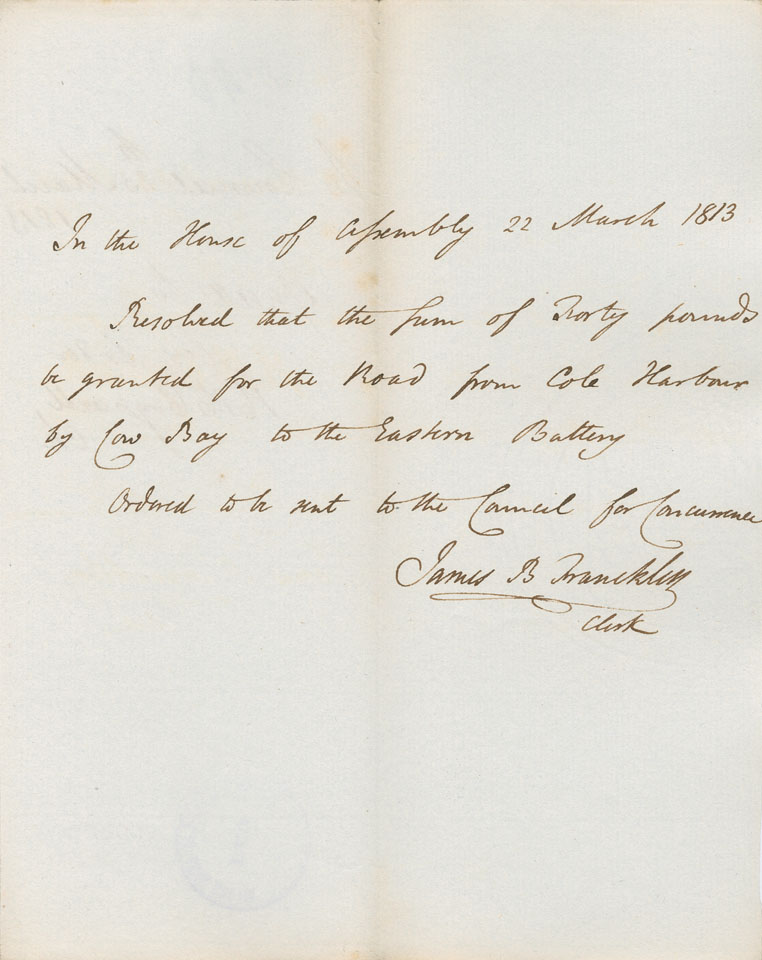 In the House of Assembly 22 March 1813
Resolved that the sum of Forty pounds
be granted for the Road from Cole Harbour
by Cow Bay to the Eastern Battery
Ordered to be sent to the Council for Concurrence
James B Francklin
Clerk